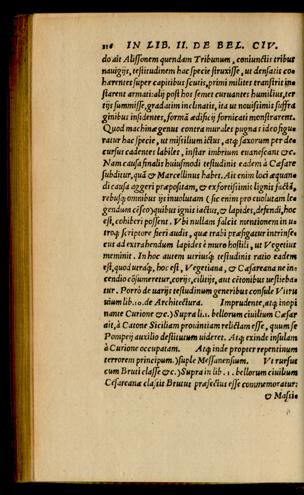 216 IN LIB. II. DE BEL. CIV.
do ait Alissonem quendam Tribunum, coniunctis tribus
nauigijs, testitudinem hac specie struxisse, ut densatis co
hærentes super capitibus scutis, primi milites transtris in
starent armati: alij post hos semet curuantes humilius, ter
tijs summisse, gradatim inclinatis, ita ut nouissimis suffra
ginibus insidentes, formã ædificij fornicati monstrarent.
Quod machinæ genus contra murales pugnas ideo figu
ratur hac specie, ut missilium ictus, atq́ saxorum per de-
cursus cadentes labiles, instar imbrium euanescant &c.
Nam causa finalis huiusmodi testudinis eadem à Cæsare
subditur, quã & Marcellinus habet. Ait enim loci æquan
di causa aggeri præpositam, & ex fortissimis lignis factã,
rebusq́ omnibus ijs inuolutam (sic enim pro euolutam le-
gendum cẽseo) quibus ignis iactus, & lapides, defendi, hoc
est, cohiberi possent. Vbi nullam falcis mentionem in u-
troq́ scriptore fieri audis, quæ trabi præfigatur intrinse-
cus ad extrahendum lapides è muro hostili, ut Vegetius
meminit. In hoc autem utriusq́ testudinis ratio eadem
est, quod utraq́, hoc est, Vegetiana, & Cæsareana ne in-
cendio cõsumeretur, corijs, cilicijs, aut cẽtonibus uestieba-
tur. Porrò de uarijs testudinum generibus consule Vitru
uium lib. 10. de Architectura. Imprudente, atq́ inopi
nante Curione &c.) Supra li. 1. bellorum ciuilium Cæsar
ait, à Catone Siciliam prouintiam relictam esse, quum se
Pompeij auxilio destitutum uideret. Atq́ exinde insulam
à Curione occupatam. Atq́ inde propter repentinum
terrorem principum.) suple Messanensium. Vt rursus
cum Bruti classe &c.) Supra in lib. 1. bellorum ciuilium
Cesareanæ classis Brutus præfectus esse commemoratur:
& Massi-